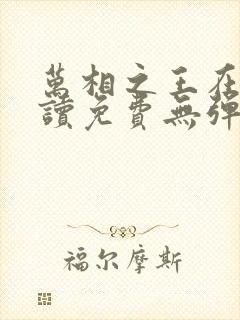 萬相之王在
讀免費無彈
福尔摩斯